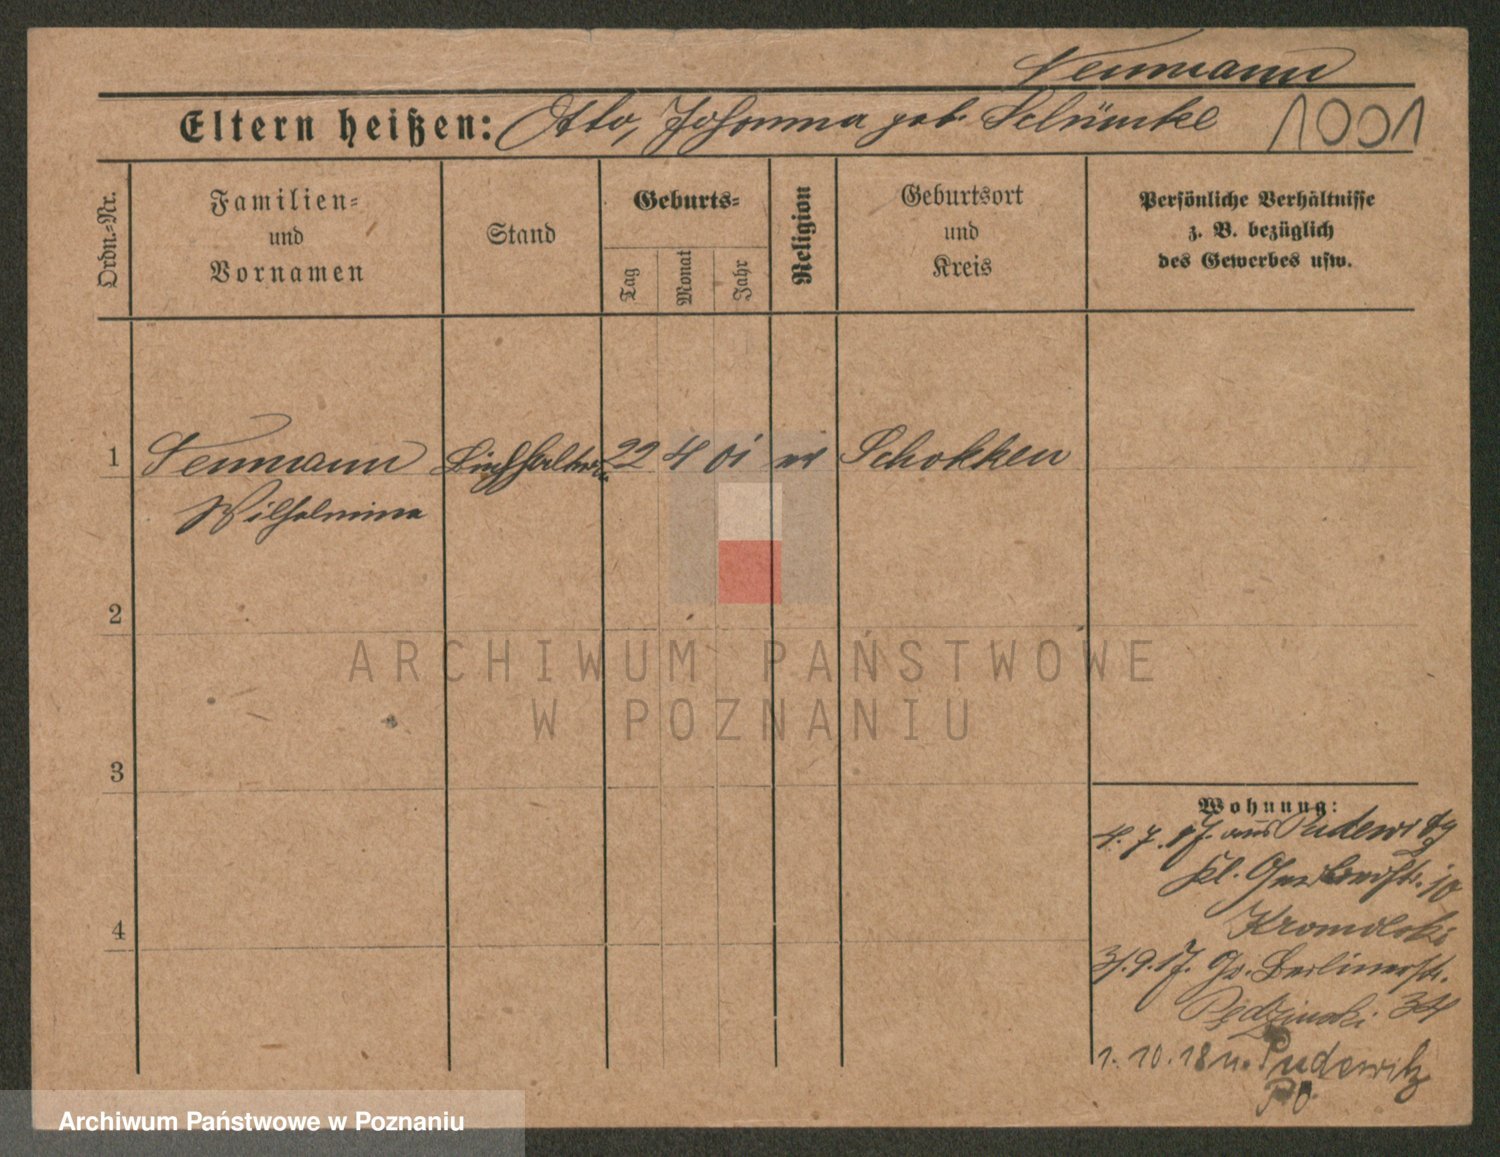 Neumann
Eltern heißen: Otto, Johanna geb. Schümke 1001
Ordn.-Nr.
Familien-
und
Vornamen
Stand
Geburts-
Tag
Monat
Jahr
Religion
Geburtsort
und
Kreis
Persönliche Verhältnisse
z. B. bezüglich
des Gewerbes usw.
1 Neumann Buchhalterin 22 4 01 ev Schokken
Wilhelmina
2
3
4
Wohnung:
4.7.17. aus Pudewitz
Kl. Gerberstr. 10
31.9.17. Gr. Berlinerstr.
34
1.10.18 n. Pudewitz
ARCHIWUM PAŃSTWOWE
W POZNANIU
Archiwum Państwowe w Poznaniu